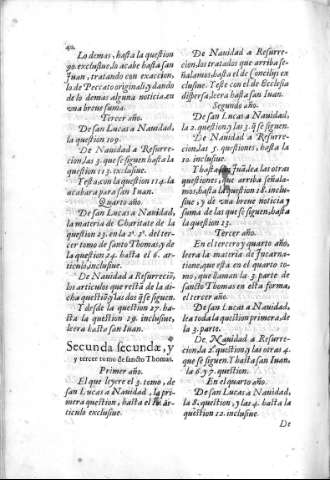 40.
Lo demas, hasta la question
90. exclusiue, lo acabe hasta san
Juan, tratando con exaccion,
lo de Peccato originali, y dando
de lo demas alguna noticia en
vna breue suma.
Tercer año.
De san Lucas a Nauidad,
la question 109.
De Nauidad a Resurre-
cion, las 3. que se siguen hasta la
question 113. exclusiue.
Y esta con la question 114. la
acabara para san Iuan.
Quarto año.
De san Lucas a Nauidad,
la materia de Charitate de la
question 23. en la 2ª. 2ª. del ter-
cer tomo de santo Thomas, y de
la question 24. hasta el 6. ar-
ticulo, inclusiue.
De Nauidad a Resurreciõ,
los articulos que restã de la di-
cha questiõ, y las dos q̃ se siguen.
Y desde la question 27. has-
ta la question 29. inclusiue,
leera hasta san Iuan.
Secunda secundæ, y
y tercer tomo de sancto Thomas.
Primer año.
El que leyere el 3. tomo, de
san Lucas a Nauidad, la pri-
mera question, hasta el ar-
ticulo exclusiue.
De Nauidad a Resurre-
cion, los tratados que arriba se-
ñalamos, hasta el de Concilijs ex
clusiue. Y este con el de Ecclesia
dispersa, leera hasta san Iuan.
Segundo año.
De san Lucas a Nauidad,
la 2. question, y las 3. q̃ se siguen.
De Nauidad a Resurre-
cion, las 5. questiones, hasta la
10. inclusiue.
Y hasta san Juã, lea las otras
questiones, que arriba señala-
mos, hasta la question 18. inclu-
siue, y de vna breue noticia y
suma de las que se siguen, hasta
la question 23.
Tercer año.
En el tercero y quarto año,
leera la materia de Incarna-
tione, que esta en el quarto to-
mo, que llaman la 3. parte de
sancto Thomas en esta forma,
el tercer año.
De san Lucas a Nauidad,
lea toda la question primera, de
la 3. parte.
De Nauidad a Resurre-
cion, la 2ª question, y las otras 4.
que se siguen. Y hasta san Iuan,
la 6. y 7. question.
En el quarto año.
De san Lucas a Nauidad,
la 8. question, y las 4. hasta la
question 12. inclusiue.
De